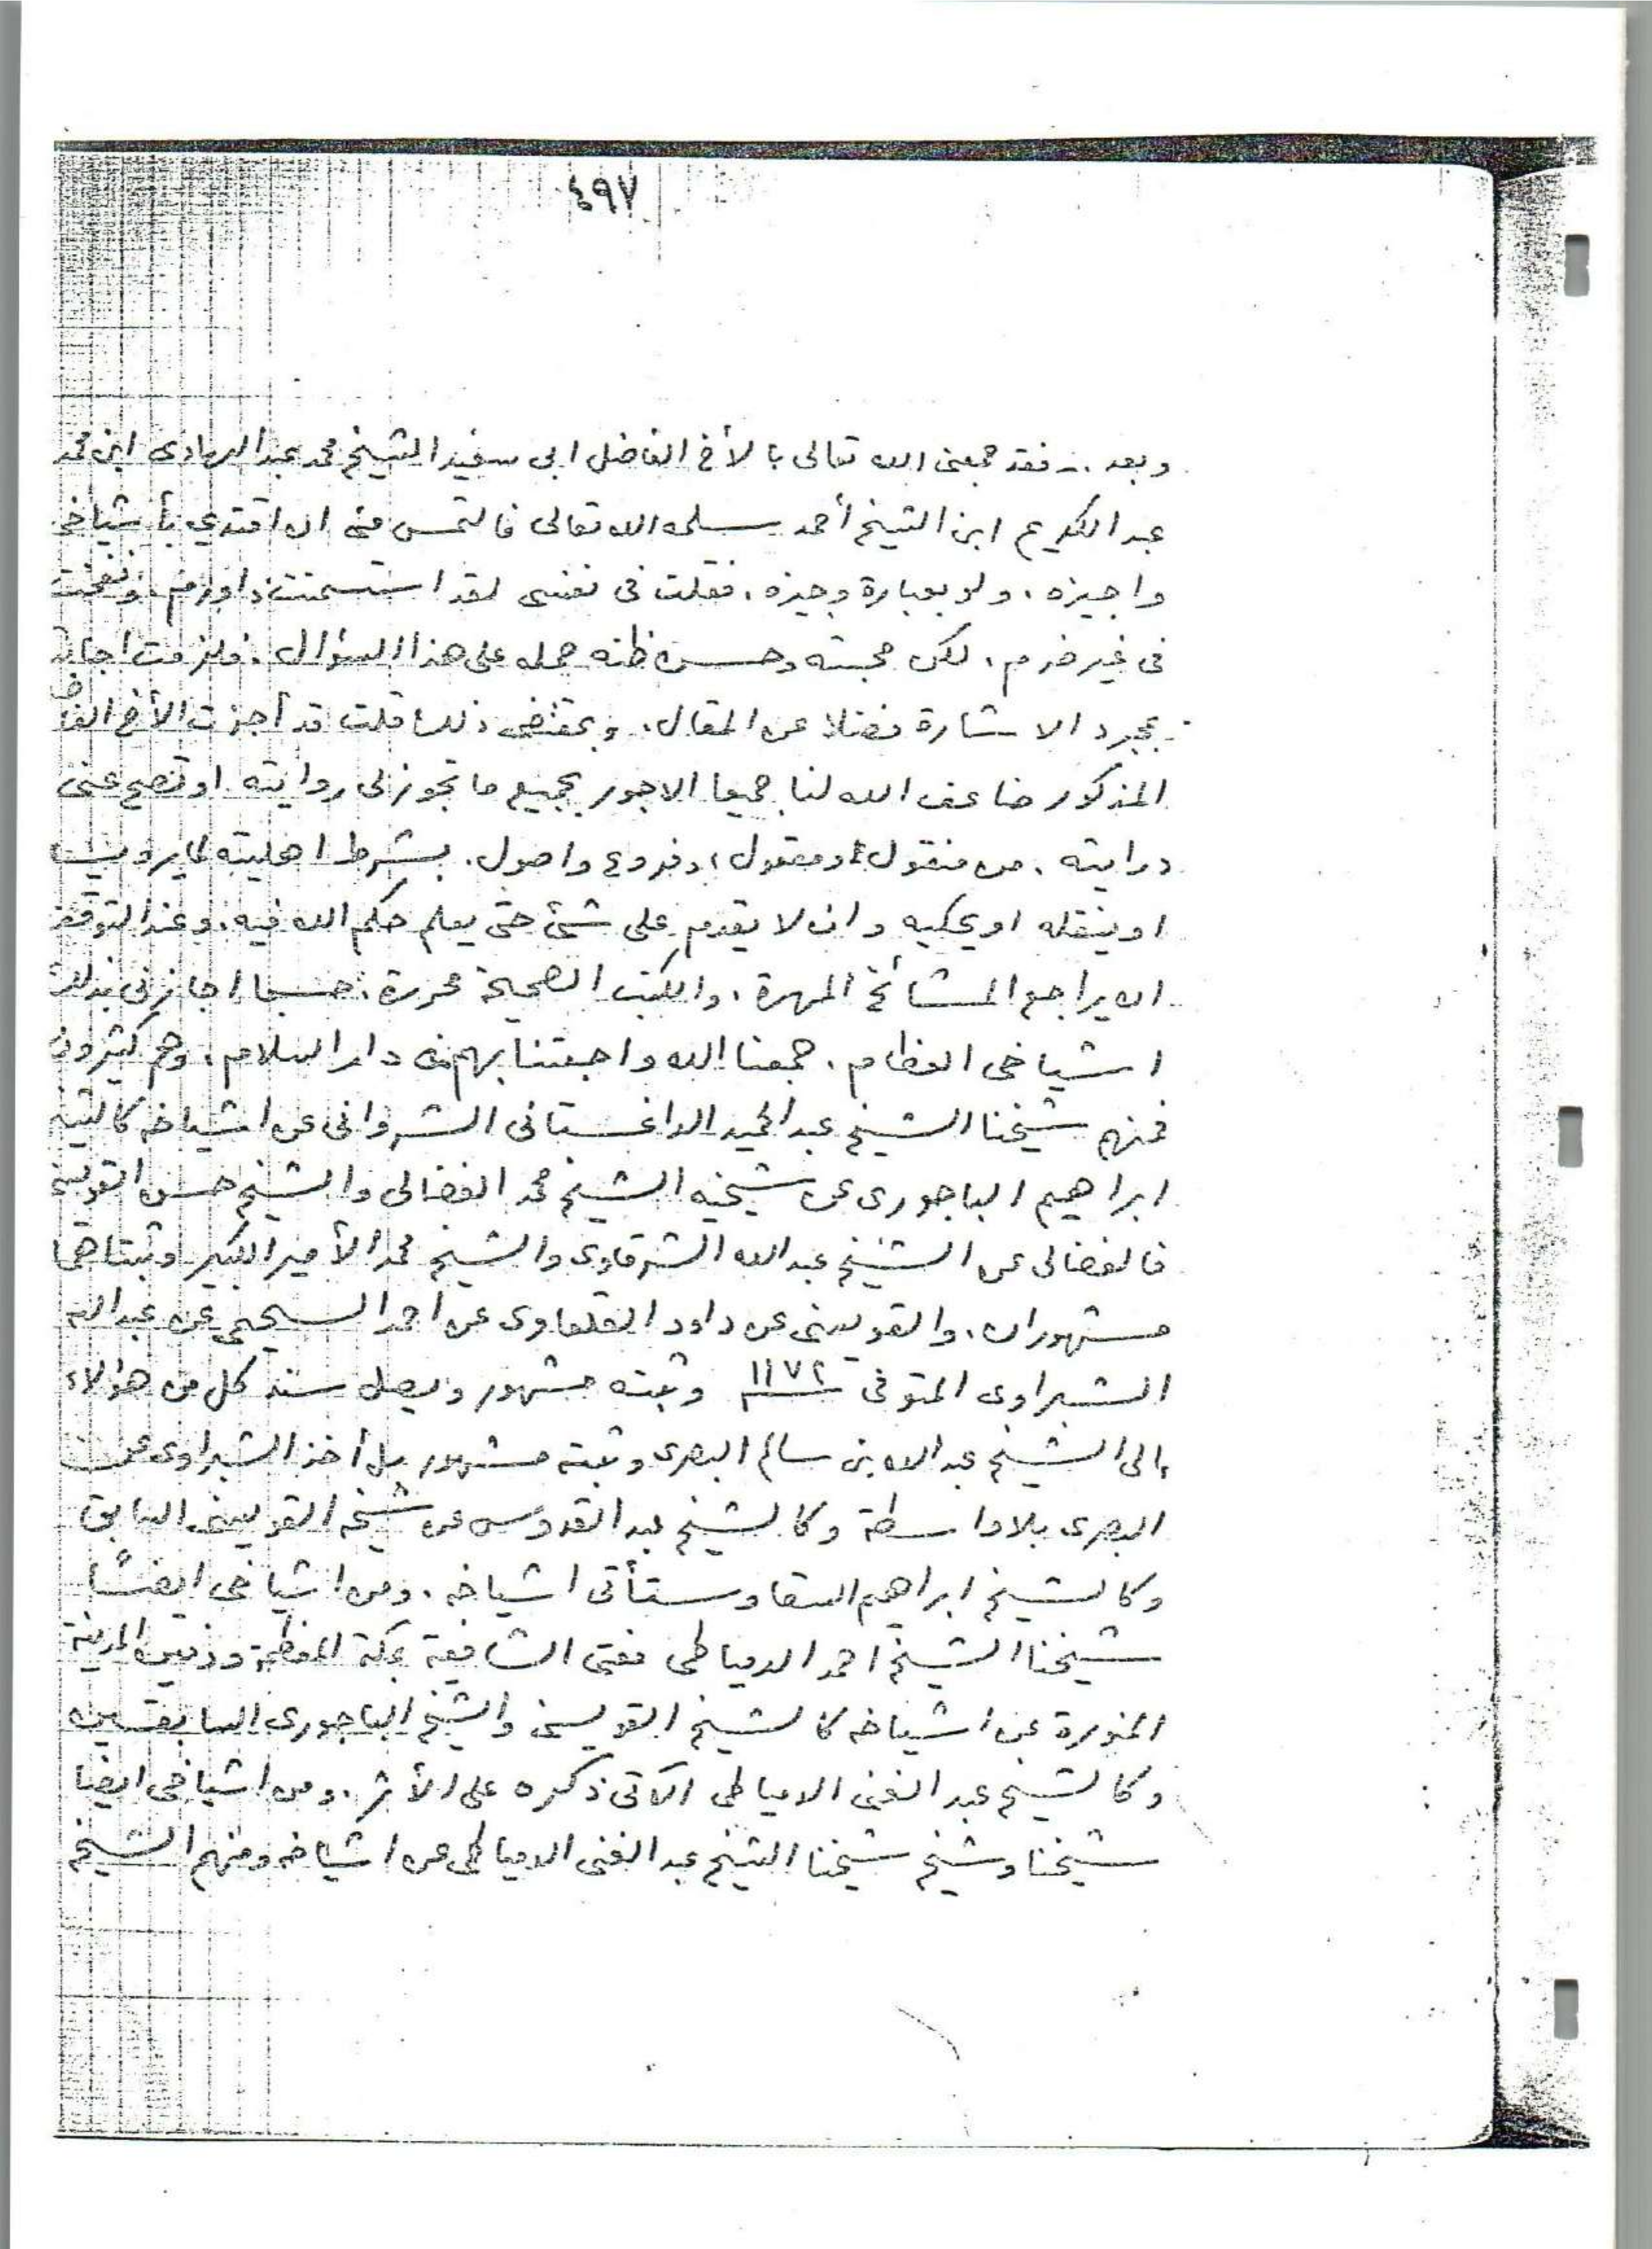 ٤٩٧
وبعد .. فقد جمعنى الله تعالى بالأخ الفاضل ابى سفيد الشيخ محمد عبد الهادى ابن محمد
عبد الكريم ابن الشيخ أحمد سلمه الله تعالى فالتمس منى ان اقتدي بأشياخى
واجيزه ، ولو بعبارة وجيزه ، فقلت فى نفسى لقد استسمنت ذا ورم ونفخت
فى غير ضرم ، لكن محبته وحسن ظنه حمله على هذا السؤال . فلزمت اجابة
بمجرد الاشارة فضلا عن المقال ، وبمقتضى ذلك قلت قد أجزت الأخ الفاض
المذكور ضاعف الله لنا جميعا الاجور بجميع ما تجوز لى روايته او تصح عنى
درايته ، من منقول او معقول ، وفروع واصول . بشرط اهليته لما يرويه
او ينقله او يحكيه وان لا يقدم على شئ حتى يعلم حكم الله فيه . وعند التوقف
ان يراجع المشائخ المهرة ، والكتب الصحيحة محررة . حسبما اجازنى بذلك
اشياخى العظام . جمعنا الله واحبتنا بهم فى دار السلام ، وهم كثيرون
فمنهم شيخنا الشيخ عبد الحميد الداغستانى الشروانى عن اشياخه كالشيخ
ابراهيم الباجورى عن شيخيه الشيخ محمد الفضالى والشيخ حسن القوينى
فالفضالى عن الشيخ عبد الله الشرقاوى والشيخ محمد الأمير الكبير وثبتاهما
مشهوران . والقويسنى عن داود القلعاوى عن احمد السحيمى عن عبد الله
الشبراوى المتوفى ١١٧٢ وثبته مشهور ويصل سند كل من هؤلاء
إلى الشيخ عبد الله بن سالم البصرى وثبته مشهور بل أخذ الشبراوى عن
البصرى بلا واسطة وكالشيخ عبد القدوس عن شيخه القويسنى السابق
وكالشيخ ابراهيم السقا وستأتى اشياخه . ومن اشياخى ايضًا
شيخنا الشيخ احمد الدمياطى مفتى الشافعية بمكة المعظمة ودفين المدينة
المنورة عن اشياخه كالشيخ القويسنى والشيخ الباجورى السابقين
وكالشيخ عبد الغنى الدمياطى الآتى ذكره على الأثر . ومن اشياخى ايضا
شيخنا وشيخ شيخنا الشيخ عبد الغنى الدمياطى عن اشياخه ومنهم الشيخ